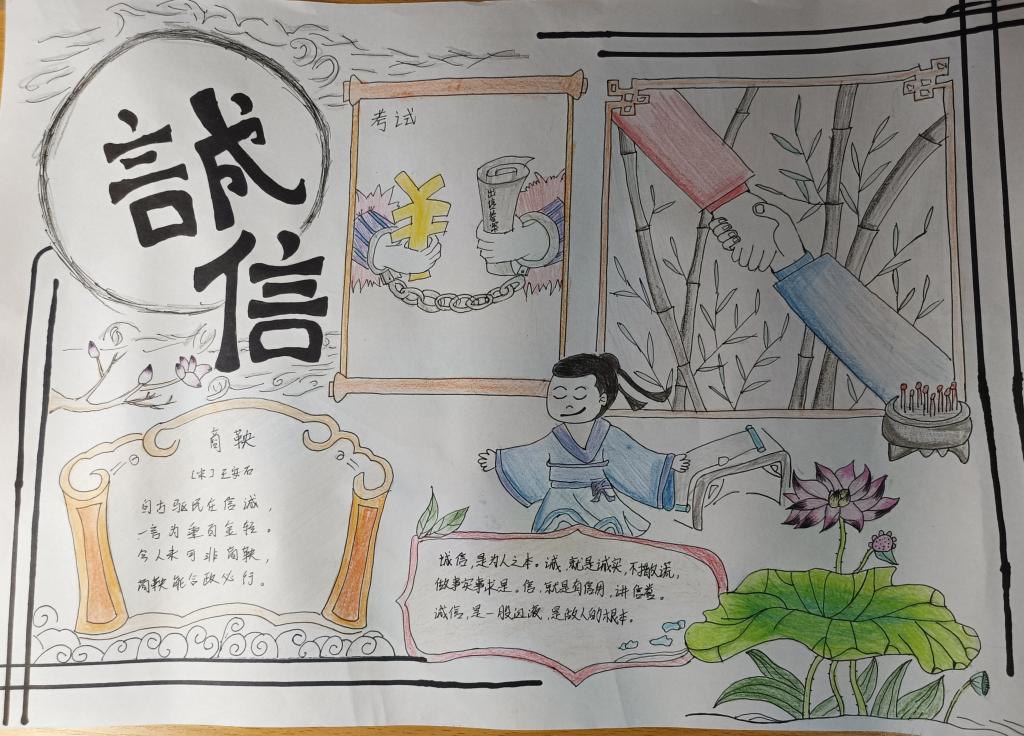 誠
信
考试
商鞅
[宋]王安石
自古驱民在信诚，
一言为重百金轻。
今人未可非商鞅，
商鞅能令政必行。
诚信，是为人之本。诚，就是诚实，不撒谎，
做事实事求是。信，就是有信用，讲信誉。
诚信，是一股迅流，是做人的根本。